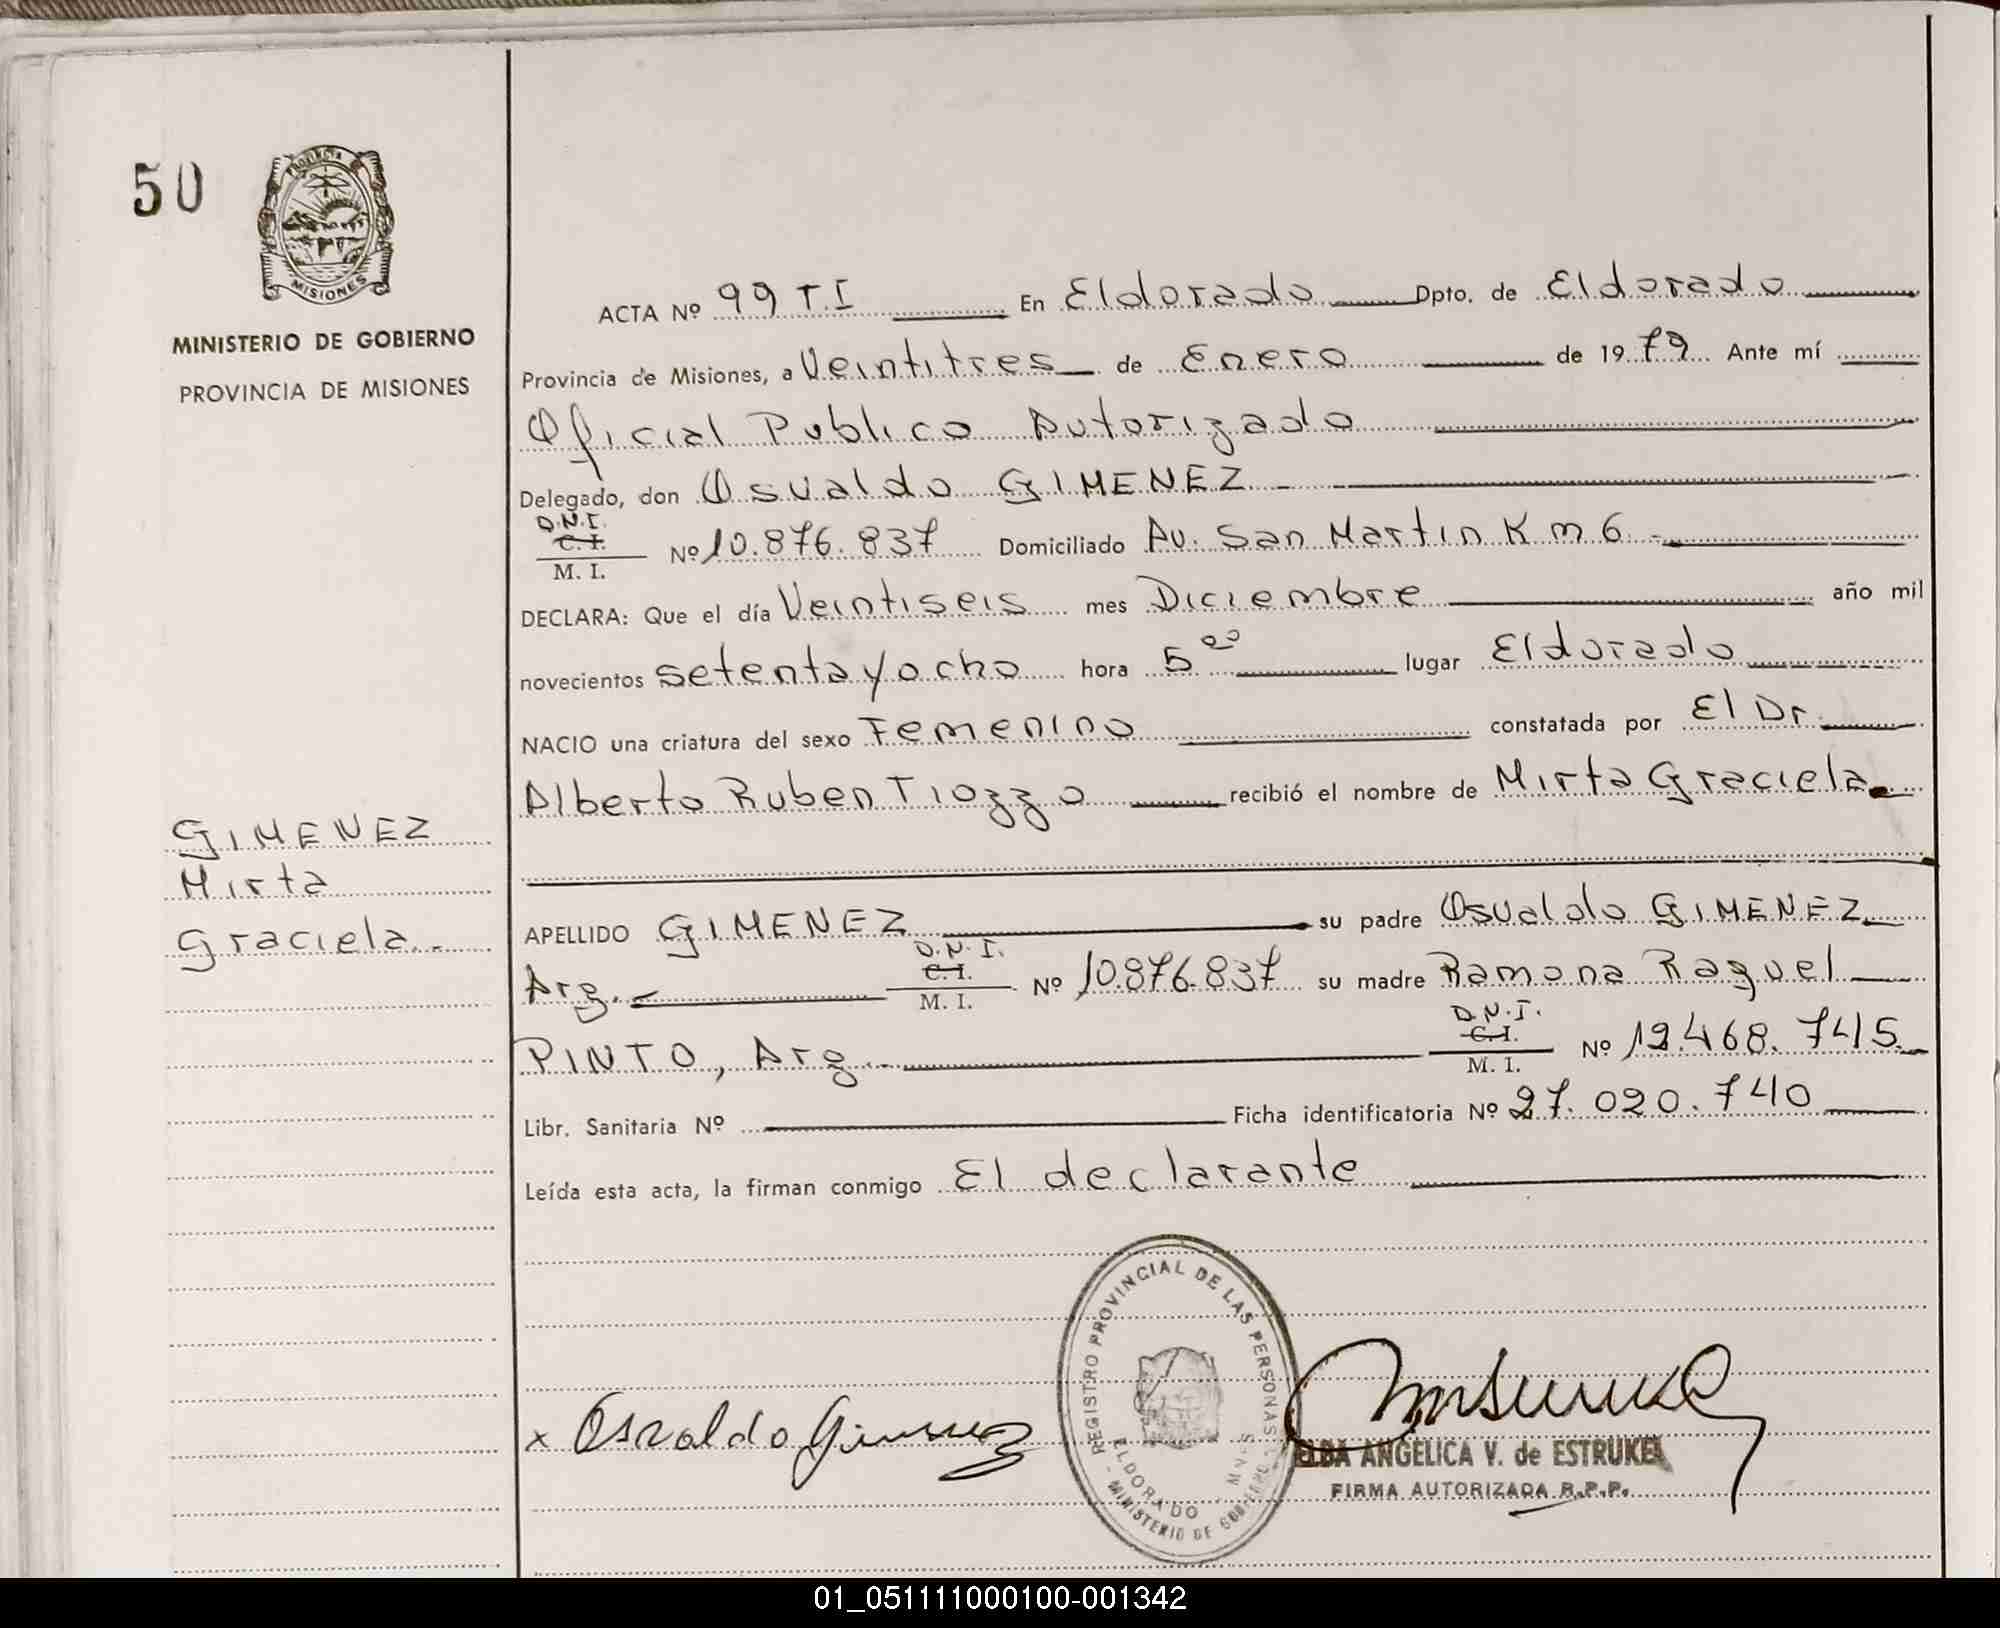 50
Provincia
MISIONES
MINISTERIO DE GOBIERNO
PROVINCIA DE MISIONES
ACTA Nº 99 T.I En Eldorado Dpto. de Eldorado
Provincia de Misiones, a Veintitres de Enero de 1979 Ante mí
Oficial Publico Autorizado
Delegado, don Osvaldo GIMENEZ.-
D.N.I.
C.I.
M. I.
Nº 10.876.837 Domiciliado Av. San Martin Km 6.-
DECLARA: Que el día Veintiseis mes Diciembre año mil
novecientos setenta y ocho hora 5 20 lugar Eldorado
NACIO una criatura del sexo Femenino constatada por El Dr.
Alberto Ruben Tiozzo recibió el nombre de Mirta Graciela
GIMENEZ
Mirta
Graciela.-
APELLIDO GIMENEZ su padre Osvaldo GIMENEZ
Arg.- D.N.I. C.I. M. I. Nº 10.876.837 su madre Ramona Raquel
PINTO, Arg.- D.N.I. C.I. M. I. Nº 12.468.745.-
Libr. Sanitaria Nº Ficha identificatoria Nº 27.020.740
Leída esta acta, la firman conmigo El declarante
REGISTRO PROVINCIAL DE LAS PERSONAS
ELDORADO
MNES
MINISTERIO DE GOBIERNO
x Osvaldo Gimenez
ELBA ANGELICA V. de ESTRUKEL
FIRMA AUTORIZADA R.P.P.
01_051111000100-001342